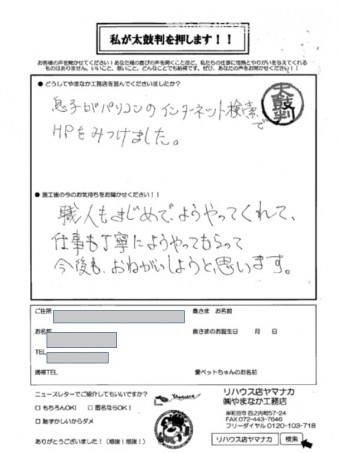 私が太鼓判を押します！！
お客様の声を聞かせてください！あなた様の喜びの声を聞くことほど、私たちの仕事に情熱とやりがいを与えてくれる
ものはありません。いいこと、悪いこと、どんなことでも結構です。ぜひ、あなたの声をお聞かせください！！
● どうしてやまなか工務店を選んでくださいましたか？
太鼓判
息子がパソコンのインターネット検索で
HPをみつけました。
● 施工後の今のお気持ちをお聞かせください！！
職人もまじめで、ようやってくれて、
仕事も丁寧にようやってもらって
今後も、おねがいしようと思います。
ご住所
奥さま お名前
お名前
奥さまのお誕生日 月 日
TEL
携帯TEL
愛ペットちゃんのお名前
ニュースレターでご紹介してもいいですか？
□ もちろんOK！ □ 匿名ならOK！
□ 恥ずかしいからダメ
ありがとうございました！（感謝！感謝！）
リハウス店ヤマナカ
㈱やまなか工務店
岸和田市
57-24
FAX 072-443-7646
フリーダイヤル 0120-103-718
リハウス店ヤマナカ 検索